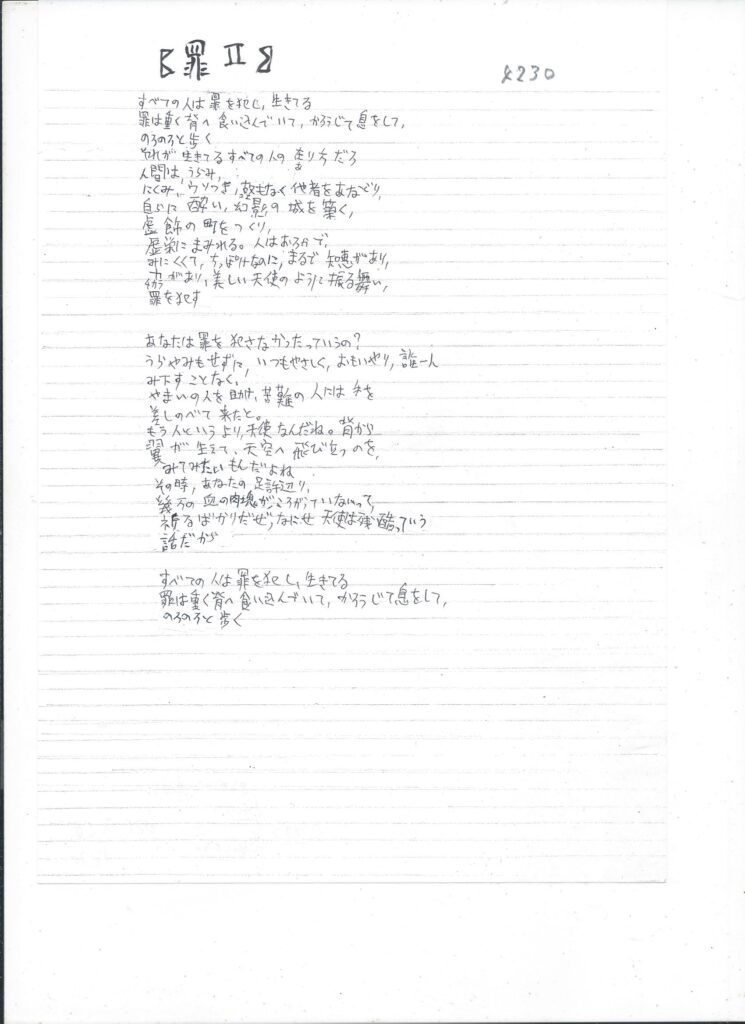 【罪Ⅱ】
K230
すべての人は罪を犯し,生きてる
罪は重く背へ食い込んでいて,かろうじて息をして,
のろのろと歩く
それが生きてるすべての人の在り方だろ
人間は,うらみ,
にくみ,ウソつき,もなく他者をあなどり,
自らに酔い,幻影の城を築く,
虚飾の町をつくり,
虚栄にまみれる。人はおろかで,
みにくくて,ちっぽけなのに,まるで知恵があり,
力があり,美しい天使のように振る舞い,
罪を犯す
あなたは罪を犯さなかったっていうの?
うらやみもせずに,いつもやさしく,おもいやり,誰一人
み下すことなく,
やまいの人を助け,苦難の人には手を
差しのべて来たと。
もう人というより,天使なんだね。背から
翼が生えて,天空へ飛び立つのを,
みてみたいもんだよね
その時,あなたの足許辺り,
幾万の血の肉塊がころがっていないって,
祈るばかりだぜ,なにせ天使は残酷っていう
話だから
すべての人は罪を犯し,生きてる
罪は重く背へ食い込んでいて,かろうじて息をして,
のろのろと歩く